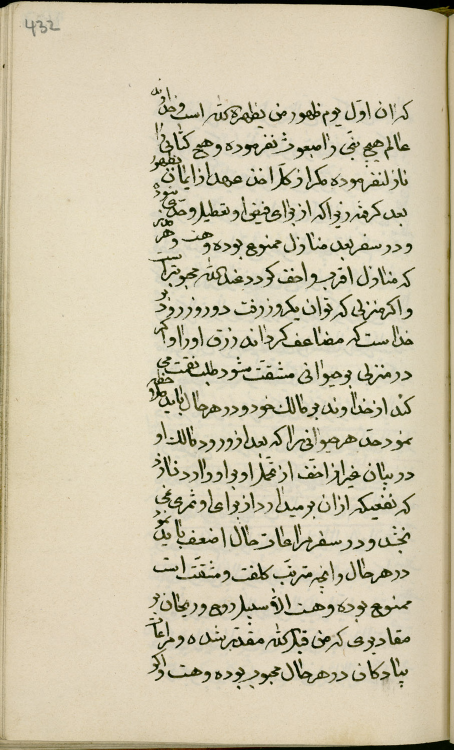 432
که ان اول یوم ظهور من یظهره الله است و خداوند
عالم هیچ نبی را مبعوث نفرموده و هیچ کتابی را
نازل نفرموده مگر انکه کل را اخذ عهد از ایمان بظهور
بعد گرفته زیرا که از برای فیض او تعطیل و حدی نبوده
و در سفر بعد منازل ممنوع بوده و هست و هر قدر
که منازل اقرب و اخف گردد عند الله محبوبتر است
و اگر منزلی که توان یکروز رفت دو روز رود بر
خداست که مضاعف گرداند رزق او را و اگر
در منزلی بر حیوانی مشقت شود طلب نقمت می
کند از خداوند بر مالک خود و در هر حال باید ملاحظه
نمود حتی هر حیوانی را که بعد از ورود مالک او
در بیان غیر از اخف از تحمل او بر او وارد نیاید
که نفعیکه از ان بر میدارد از برای او ثمری نمی
بخشد و در سفر مراعات حال اضعف باید نمود
در هر حال و انچه مترتب کلفت و مشقت است
ممنوع بوده و هست الا سبیل روح و ریحان بر
مقادیری که من قبل الله مقدر شده و مراعات
پیادگان در هر حال محبوب بوده و هست و اگر